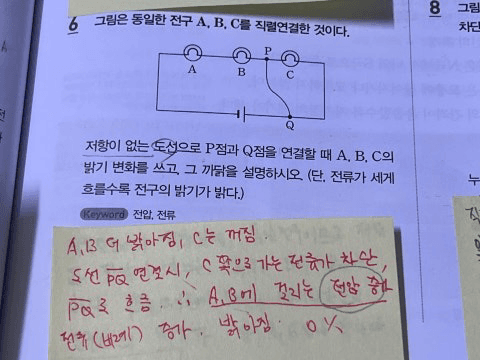 6 그림은 동일한 전구 A, B, C를 직렬연결한 것이다.
P
A B C
Q
저항이 없는 도선으로 P점과 Q점을 연결할 때 A, B, C의
밝기 변화를 쓰고, 그 까닭을 설명하시오. (단, 전류가 세게
흐를수록 전구의 밝기가 밝다.)
Keyword 전압, 전류
A, B 더 밝아짐, C는 꺼짐.
도선 PQ 연결시, C 쪽으로 가는 전류가 차단,
PQ로 흐름. ∴ A, B에 걸리는 전압 증가
전류 (비례) 증가. 밝아짐
8 그림
차단